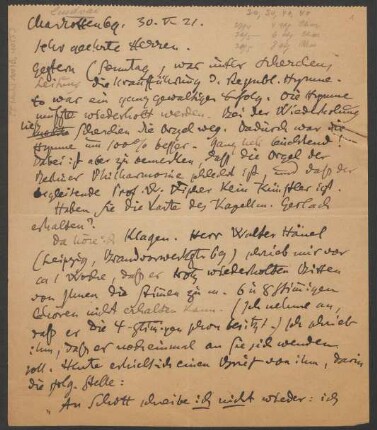 Charlottenbg. 30. V. 21.
Sehr geehrte Herren.
Gestern (Sonntag) war unter Scherchens
Leitung die Uraufführung d. Republ. Hymne.
Es war ein ganz gewaltiger Erfolg. Die Hymne
mußte wiederholt werden. Bei der Wiederholung
ließ Scherchen die Orgel weg. Dadurch war die
Hymne um 100% besser. Ganz leuchtend!
Dabei ist aber zu bemerken, daß die Orgel der
Berliner Philharmonie schlecht ist, und daß der
begleitende Prof. Dr. Fischer kein Künstler ist.
Haben Sie die Karte des Kapellm. Gerlach
erhalten?
Da höre ich Klagen. Herr Walter Hänel
(Leipzig, Brandvorwerkstr. 69) schrieb mir vor
ca 1 Woche, daß er trotz wiederholten Bitten
von Ihnen die Stimmen zu m. 6 u 8 stimmigen
Chören nicht erhalten kann. (Ich nehme an,
daß er die 4-stimmigen schon besitzt.) Ich schrieb
ihm, daß er noch einmal an Sie sich wenden
soll. Heute erhielt ich einen Brief von ihm, darin
die folg. Stelle:
"An Schott schreibe ich nicht wieder: ich